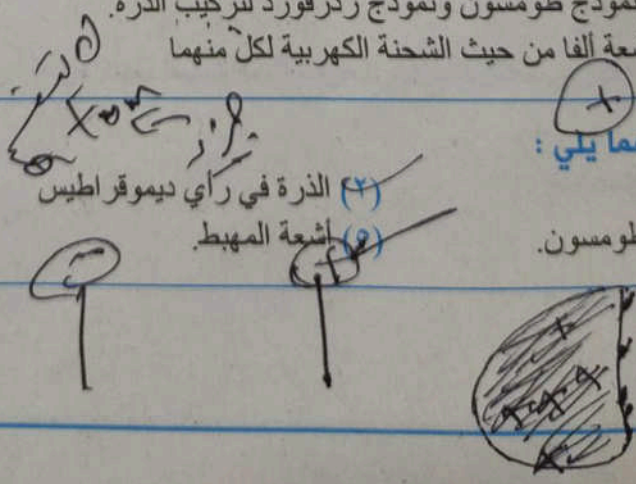 نموذج طومسون ونموذج رذرفورد لتركيب الذرة.
ألفا من حيث الشحنة الكهربية لكل منهما
يلي :
(٢) الذرة في رأي ديموقراطيس
طومسون.
(٥) أشعة المهبط.